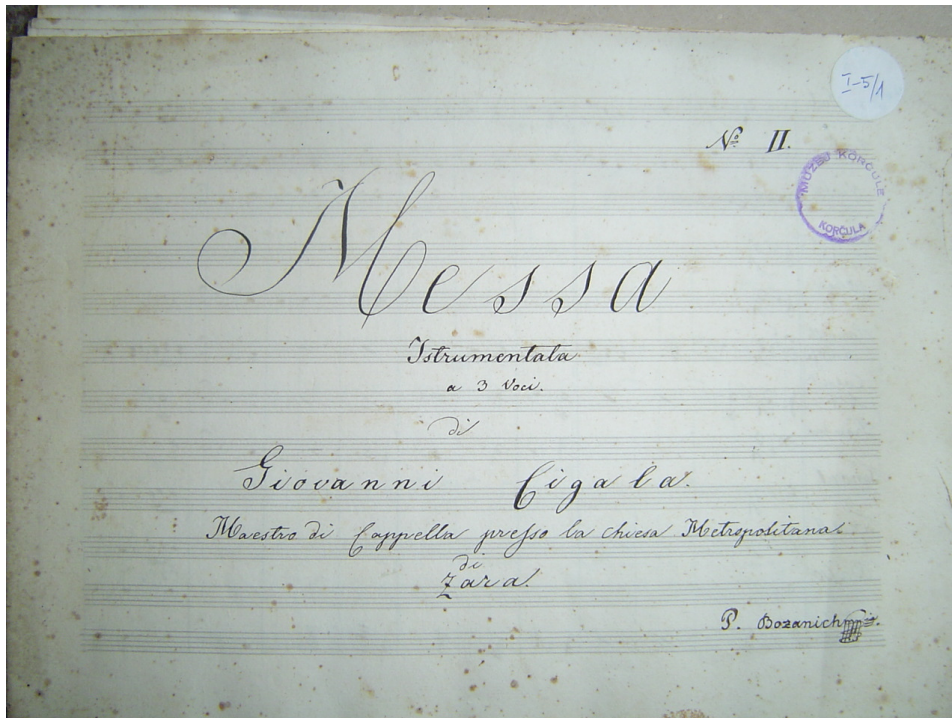 I-5/1
No II.
MUZEJ KORČULE
KORČULA
Messa
Istrumentata
a 3 Voci.
di
Giovanni Cigala.
Maestro di Cappella presso la chiesa Metropolitana
di
Zara.
P. Bozanich